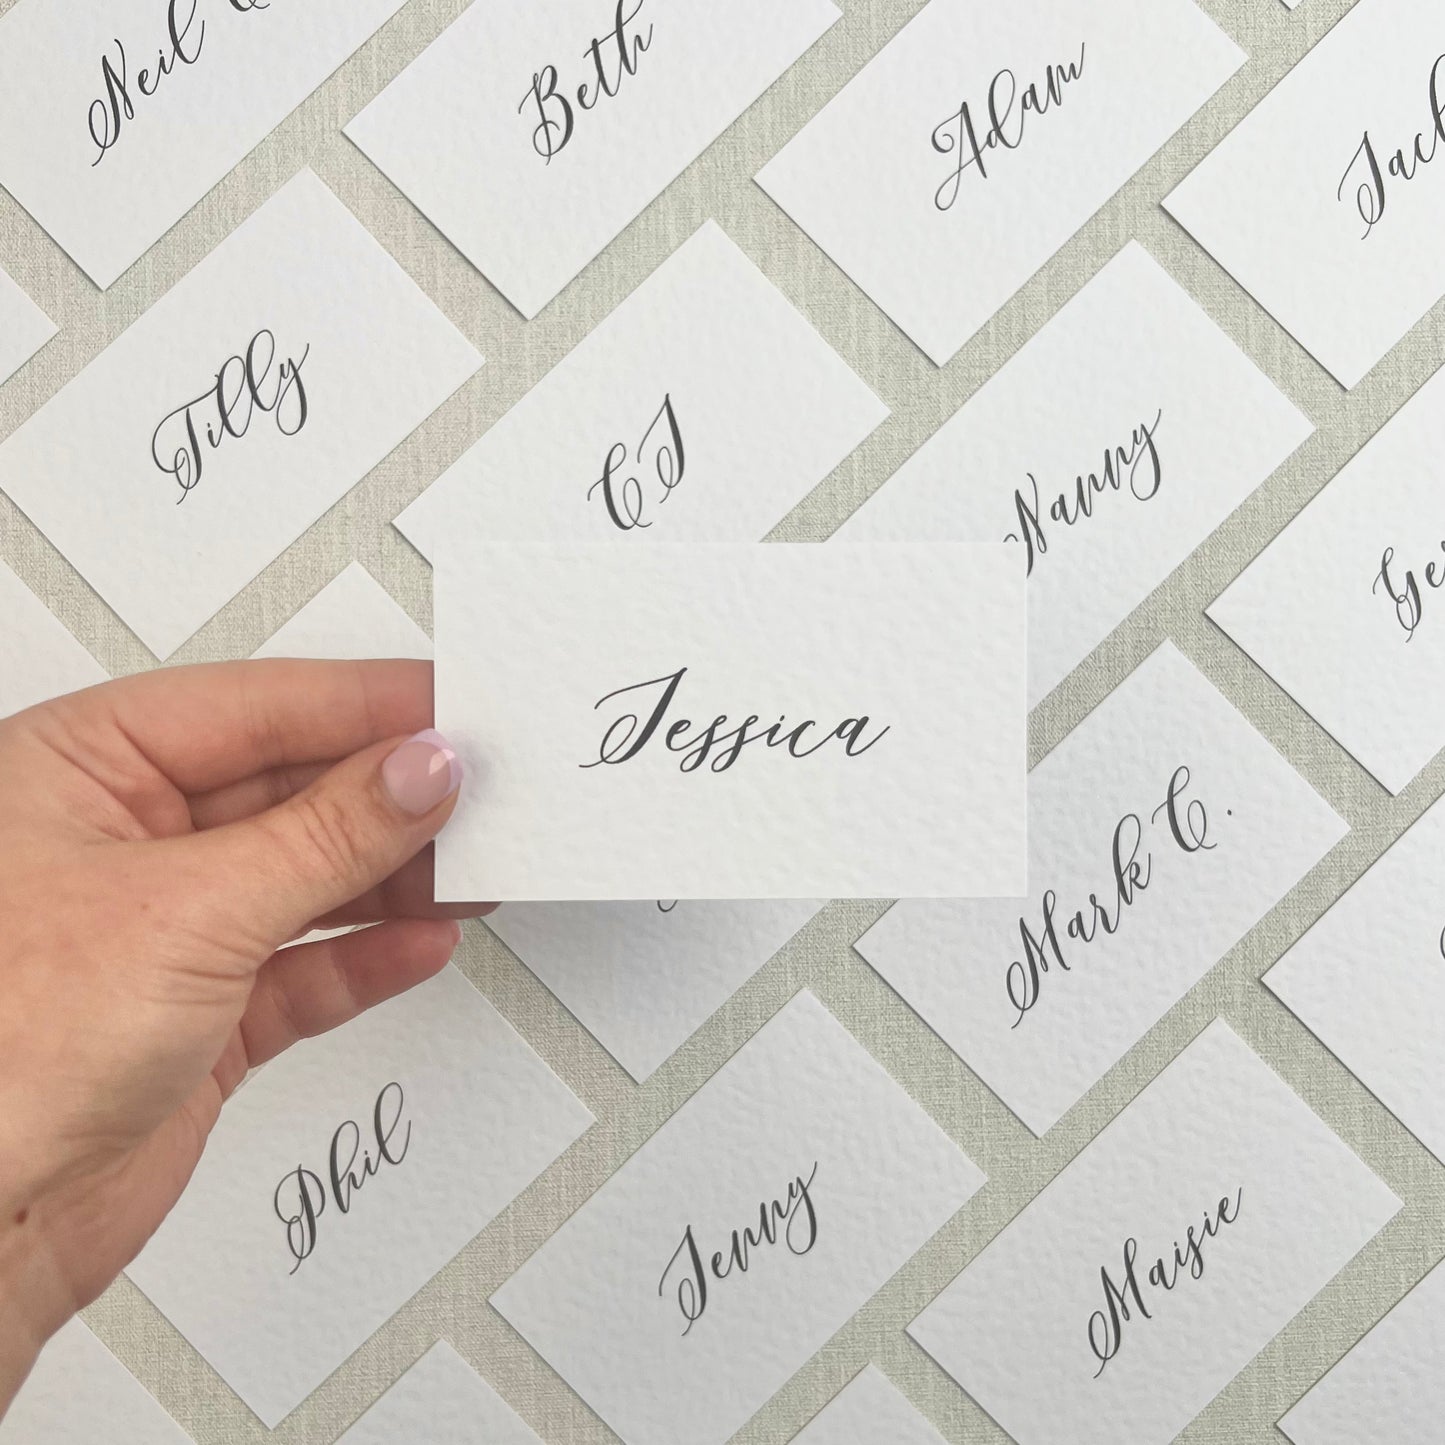 Neil
Beth
Adam
Tilly
CJ
Nanny
Jessica
Mark C.
Phil
Jenny
Maisie